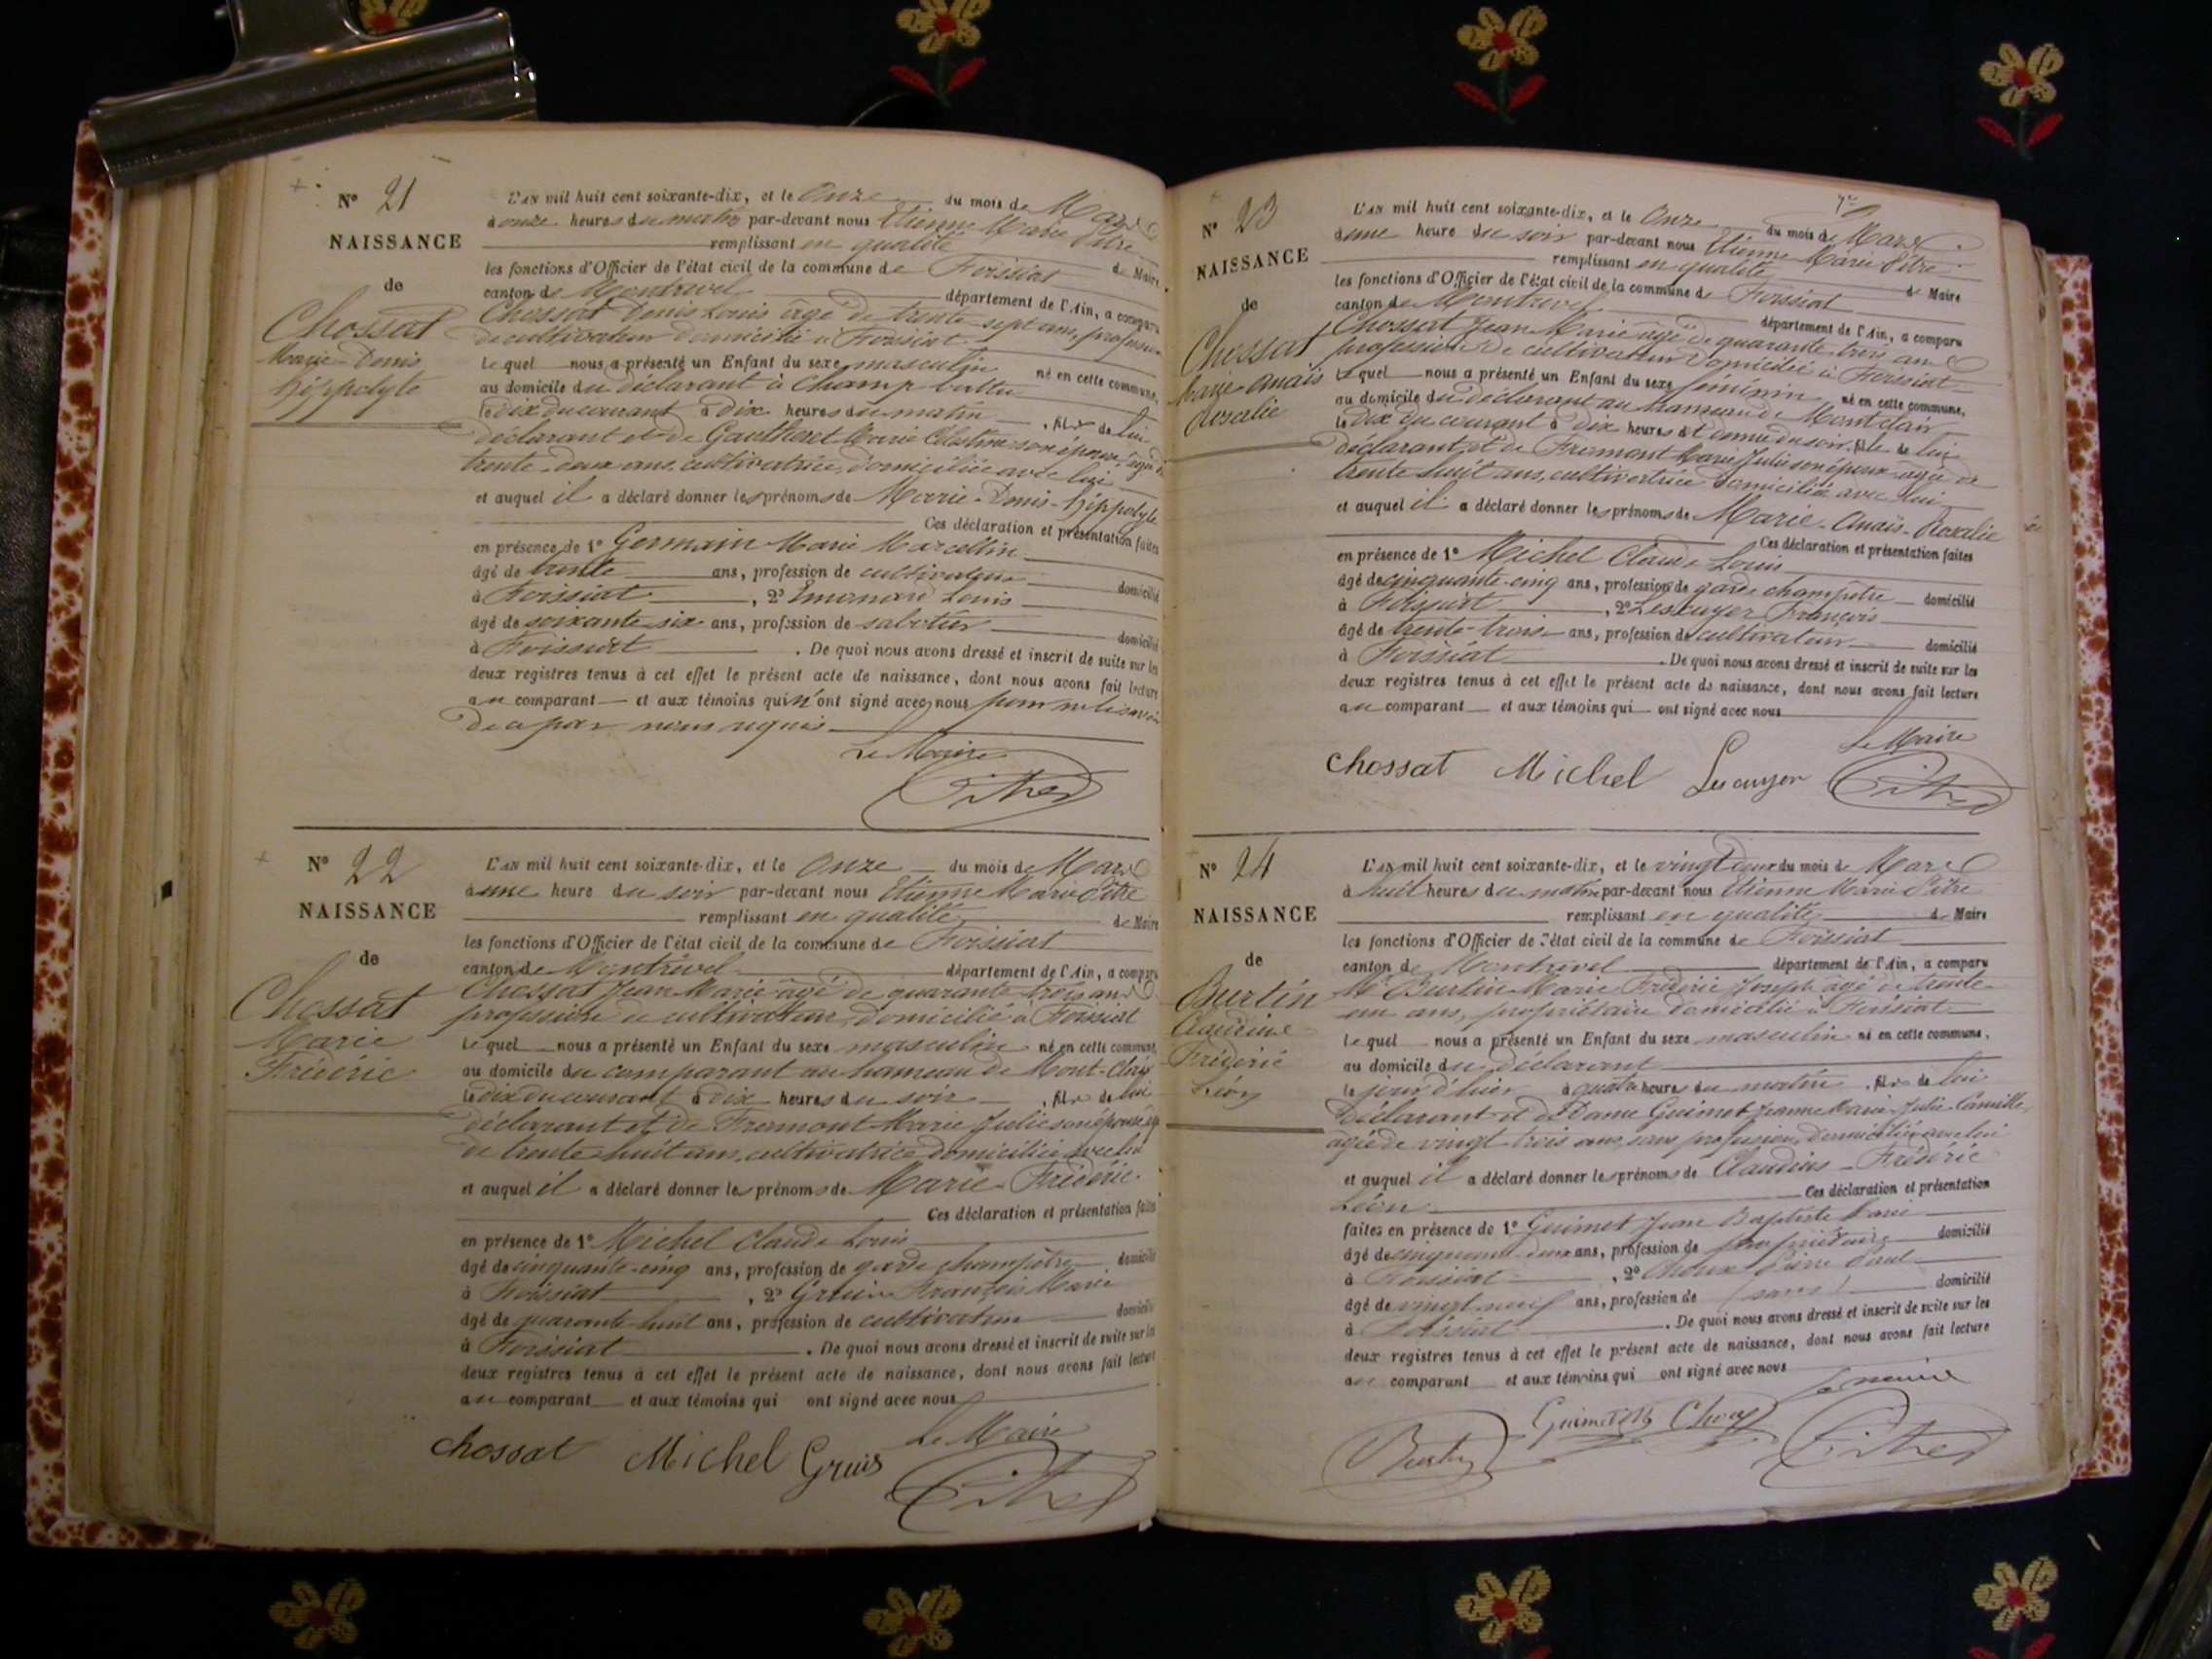 N° 21
NAISSANCE
de
Chossat
Marie-Denis
hippolyte
L'AN mil huit cent soixante-dix, et le Onze du mois de Mars
à onze heures du matin par-devant nous Etienne Marie Pitre
remplissant en qualité de Maire
les fonctions d'Officier de l'état civil de la commune de Foissiat
canton de Montrevel département de l'Ain, a comparu
Chossat Denis Louis âgé de trente-sept ans, profession
de cultivateur domicilié à Foissiat
Lequel nous a présenté un Enfant du sexe masculin né en cette commune,
au domicile du déclarant à Champ-battu
le dix du courant à dix heures du matin, fils de lui
déclarant et de Gautheret Marie son épouse âgée de
trente-deux ans, cultivatrice, domiciliée avec lui
et auquel il a déclaré donner les prénoms de Marie-Denis-hippolyte
Ces déclaration et présentation faites
en présence de 1° Germain Marie Marcellin
âgé de trente ans, profession de cultivateur domicilié
à Foissiat, 2° Louis
âgé de soixante six ans, profession de sabotier domicilié
à Foissiat. De quoi nous avons dressé et inscrit de suite sur les
deux registres tenus à cet effet le présent acte de naissance, dont nous avons fait lecture
au comparant et aux témoins qui n'ont signé avec nous pour ne le savoir
de ce par nous requis
Le Maire
Pitre
N° 22
NAISSANCE
de
Chossat
Marie
Frédéric
L'AN mil huit cent soixante-dix, et le Onze du mois de Mars
à une heure du soir par-devant nous Etienne Marie Pitre
remplissant en qualité de Maire
les fonctions d'Officier de l'état civil de la commune de Foissiat
canton de Montrevel département de l'Ain, a comparu
Chossat Jean Marie âgé de quarante-trois ans
profession de cultivateur, domicilié à Foissiat
Lequel nous a présenté un Enfant du sexe masculin né en cette commune,
au domicile du comparant au hameau de Mont-
le dix du courant à dix heures du soir, fils de lui
déclarant et de Fremont Marie Julie son épouse âgée
de trente huit ans, cultivatrice domiciliée avec lui
et auquel il a déclaré donner les prénoms de Marie-Frédéric.
Ces déclaration et présentation faites
en présence de 1° Michel Claude Louis
âgé de cinquante-cinq ans, profession de garde champêtre domicilié
à Foissiat, 2° François Marie
âgé de quarante huit ans, profession de cultivateur domicilié
à Foissiat. De quoi nous avons dressé et inscrit de suite sur les
deux registres tenus à cet effet le présent acte de naissance, dont nous avons fait lecture
au comparant et aux témoins qui ont signé avec nous
Le Maire
chossat Michel Pitre
N° 23
NAISSANCE
de
Chossat
Marie-Anaïs
Rosalie
L'AN mil huit cent soixante-dix, et le Onze du mois de Mars
à une heure du soir par-devant nous Etienne Marie Pitre
remplissant en qualité de Maire
les fonctions d'Officier de l'état civil de la commune de Foissiat
canton de Montrevel département de l'Ain, a comparu
Chossat Jean Marie âgé de quarante-trois ans
profession de cultivateur domicilié à Foissiat
Lequel nous a présenté un Enfant du sexe féminin né en cette commune,
au domicile du déclarant au hameau de Montclair
le dix du courant à dix heures et demie du soir, fille de lui
déclarant et de Fremont Marie Julie son épouse âgée de
trente huit ans, cultivatrice domiciliée avec lui
et auquel il a déclaré donner les prénoms de Marie-Anaïs-Rosalie
Ces déclaration et présentation faites
en présence de 1° Michel Claude Louis
âgé de cinquante-cinq ans, profession de garde champêtre domicilié
à Foissiat, 2° Lescuyer François
âgé de trente-trois ans, profession de cultivateur domicilié
à Foissiat. De quoi nous avons dressé et inscrit de suite sur les
deux registres tenus à cet effet le présent acte de naissance, dont nous avons fait lecture
au comparant et aux témoins qui ont signé avec nous
Le Maire
chossat Michel Lescuyer Pitre
N° 24
NAISSANCE
de
Burtin
Claudius
Frédéric
Léon
L'AN mil huit cent soixante-dix, et le vingt deux du mois de Mars
à huit heures du matin par-devant nous Etienne Marie Pitre
remplissant en qualité de Maire
les fonctions d'Officier de l'état civil de la commune de Foissiat
canton de Montrevel département de l'Ain, a comparu
Mr Burtin Marie Frédéric Joseph âgé de trente-
un ans, propriétaire domicilié à Foissiat
Lequel nous a présenté un Enfant du sexe masculin né en cette commune,
au domicile du déclarant
le jour d'hier à quatre heures du matin, fils de lui
déclarant et de Dame Guimet Jeanne Marie Julie Camille,
âgée de vingt trois ans, sans profession, domiciliée avec lui
et auquel il a déclaré donner les prénoms de Claudius-Frédéric
Léon Ces déclaration et présentation
faites en présence de 1° Guimet Jean Baptiste
âgé de cinquante-deux ans, profession de propriétaire domicilié
à Foissiat, 2° Pierre Paul
âgé de vingt-neuf ans, profession de (sans) domicilié
à Foissiat. De quoi nous avons dressé et inscrit de suite sur les
deux registres tenus à cet effet le présent acte de naissance, dont nous avons fait lecture
au comparant et aux témoins qui ont signé avec nous
Le maire
Burtin Guimet Pitre